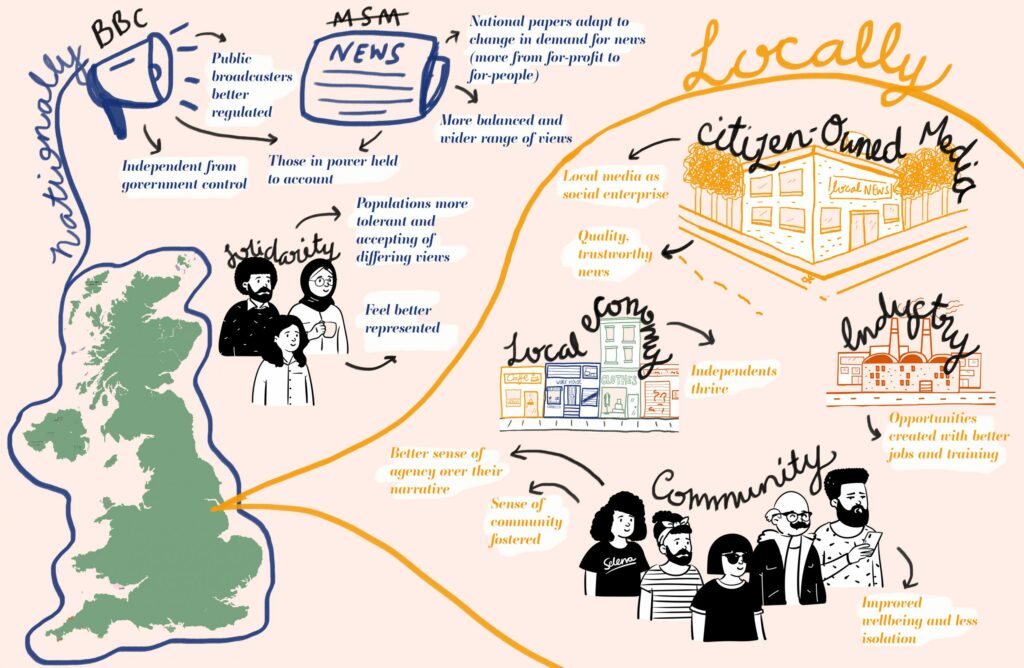 Nationally
BBC
Public
broadcasters
better
regulated
Independent from
government control
MSM
NEWS
Those in power held
to account
National papers adapt to
change in demand for news
(move from for-profit to
for-people)
More balanced and
wider range of views
Solidarity
Populations more
tolerant and
accepting of
differing views
Feel better
represented
Locally
Citizen-Owned Media
Local NEWS
Local media as
social enterprise
Quality,
trustworthy
news
Local economy
CLOTHES
Independents
thrive
Industry
Opportunities
created with better
jobs and training
Community
Better sense of
agency over their
narrative
Sense of
community
fostered
Selena
Improved
wellbeing and less
isolation